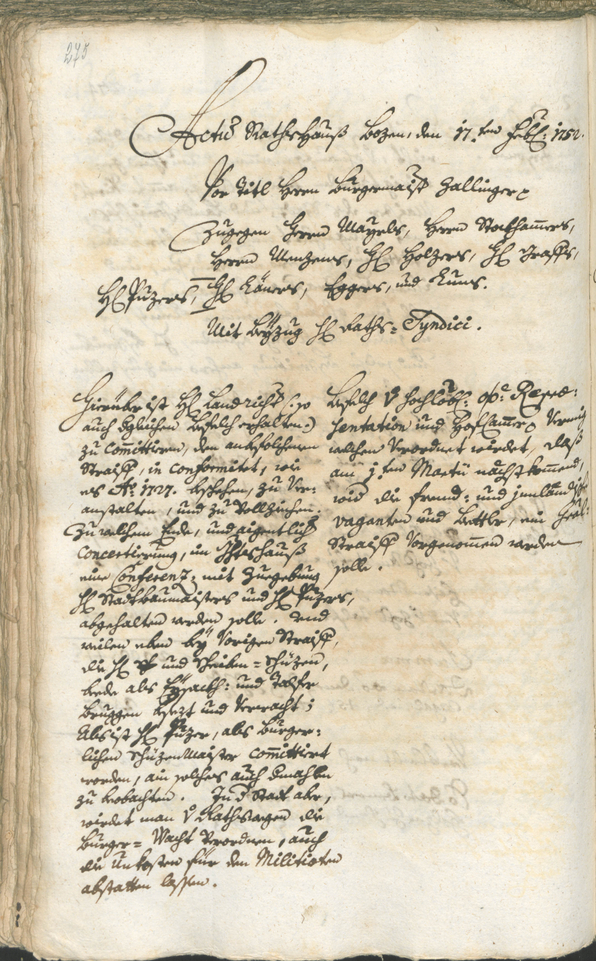 245
Actum Rathshauß Bozen, den 17.ten Febr: 1752.
Vor Titl Herrn Burgermaist Zallinger
Zugegen Herrn Mayrls, Herrn Stockhamers,
Herrn Menzens, H: Holzers, H: Graffs,
H: Puzers, H: Käners, Eggers, und Kuns.
Mit Beyzug H: Raths-Syndici.
Hierüber ist H: Landrichter
auch dergleichen Befelch erhalten
zu Comittiren, den anbefohlenen
Straiff, in conformitet, wie
es Aō: 1727. beschehen, zu Ver-
anstalten, und zu Vollziehen.
Zu welchem Ende, und eigentlich
Concertierung, im Ghtshauß
eine Conferenz, mit Zuegebung
H: Stadtbaumaisters und H: Puzers,
abgehalten werden solle. Und
weilen eben bey Vorigen Straiff,
die H: und Scheiben-Schüzen,
beede als Eysackh- und Talfer
Bruggen besezt und Verwacht;
Als ist H: Puzer, als Burger-
lichen SchüzenMaister Comittiert
worden, ain solches auch dermahlen
zu beobachten. In d Stadt aber,
wirdet man V Rathswegen die
Burger-Wacht Verordnen, auch
die Unkosten für den Militioten
abstatten lassen.
Befelch V Hochlöbl: O:Ö: Repræ-
sentation und Hofcammer Vermig
welchen Verordnet wirdet, daß
am j.ten Martii nächstkommend,
wid die fremd- und innländisch
Vaganten und Bettler, ein Gral-
Straiff Vorgenommen werden
solle.